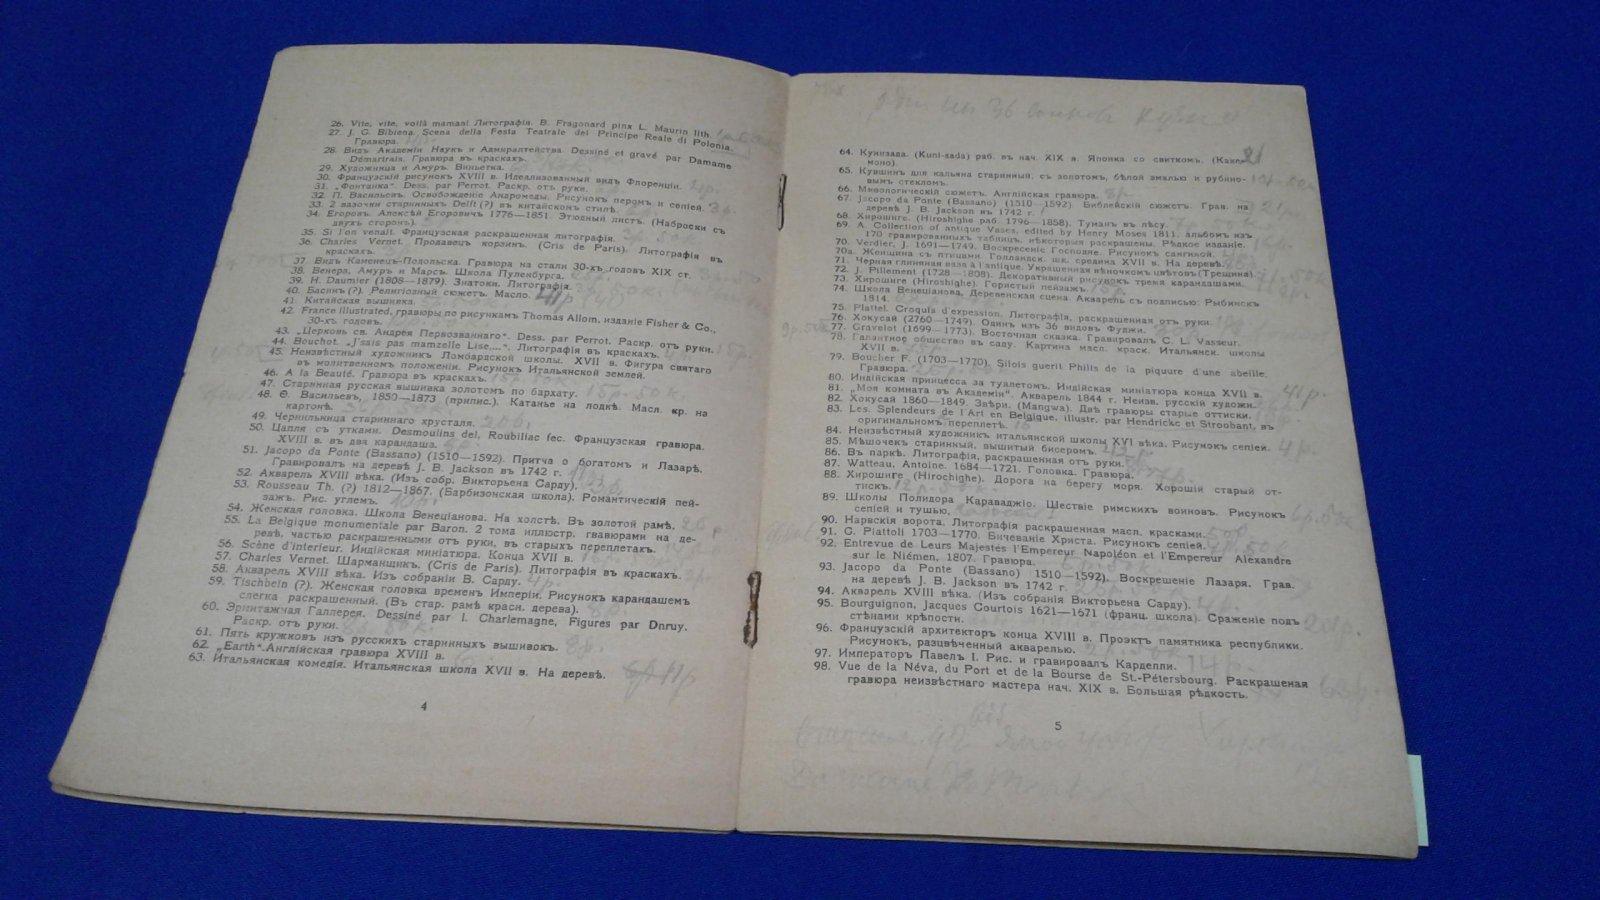 26. Vite, vite, voilà maman! Литографія. B. Fragonard pinx L. Maurin lith.
27. J. G. Bibiena. Scena della Festa Teatrale del Principe Reale di Polonia.
Гравюра.
28. Видъ Академіи Наукъ и Адмиралтейства. Dessiné et gravé par Damame
Démartrais. Гравюра въ краскахъ.
29. Художница и Амуръ. Виньетка.
30. Французскій рисунокъ XVIII в. Идеализованный видъ Флоренціи.
31. „Фонтанка“. Dess. par Perrot. Раскр. отъ руки.
32. П. Васильевъ. Освобожденіе Андромеды. Рисунокъ перомъ и сепіей.
33. 2 вазочки старинныхъ Delft (?) въ китайскомъ стилѣ.
34. Егоровъ. Алексѣй Егоровичъ 1776—1851. Этюдный листъ. (Наброски съ
двухъ сторонъ).
35. Si l'on venait. Французская раскрашенная литографія.
36. Charles Vernet. Продавецъ корзинъ. (Cris de Paris). Литографія въ
краскахъ.
37. Видъ Каменецъ-Подольска. Гравюра на стали 30-хъ годовъ XIX ст.
38. Венера, Амуръ и Марсъ. Школа Пуленбурга.
39. H. Daumier (1808—1879). Знатоки. Литографія.
40. Басинъ (?). Религіозный сюжетъ. Масло.
41. Китайская вышивка.
42. France illustrated, гравюры по рисункамъ Thomas Allom, изданіе Fisher & Co.,
30-хъ годовъ.
43. „Церковь св. Андрея Первозваннаго“. Dess. par Perrot. Раскр. отъ руки.
44. Bouchot. „J'sais pas mamzelle Lise....“. Литографія въ краскахъ.
45. Неизвѣстный художникъ Ломбардской школы. XVII в. Фигура святаго
въ молитвенномъ положеніи. Рисунокъ Итальянской землей.
46. A la Beauté. Гравюра въ краскахъ. 15р.50к.
47. Старинная русская вышивка золотомъ по бархату. 15р.50к.
48. Ѳ. Васильевъ, 1850—1873 (припис.). Катанье на лодкѣ. Масл. кр. на
картонѣ.
49. Чернильница стариннаго хрусталя.
50. Цапля съ утками. Desmoulins del, Roubillac fec. Французская гравюра.
XVIII в. въ два карандаша.
51. Jacopo da Ponte (Bassano) (1510—1592). Притча о богатомъ и Лазарѣ.
Гравировалъ на деревѣ J. B. Jackson въ 1742 г.
52. Акварель XVIII вѣка. (Изъ собр. Викторьена Сарду).
53. Rousseau Th. (?) 1812—1867. (Барбизонская школа). Романтическій пей-
зажъ. Рис. углемъ.
54. Женская головка. Школа Венеціанова. На холстѣ. Въ золотой рамѣ.
55. La Belgique monumentale par Baron. 2 тома иллюстр. гвавюрами на де-
ревѣ, частью раскрашенными отъ руки, въ старыхъ переплетахъ.
56. Scène d'interieur. Индійская миніатюра. Конца XVII в.
57. Charles Vernet. Шарманщикъ. (Cris de Paris). Литографія въ краскахъ.
58. Акварель XVIII вѣка. Изъ собраніи В. Сарду. 4р.
59. Tischbein (?). Женская головка временъ Имперіи. Рисунокъ карандашемъ
слегка раскрашенный. (Въ стар. рамѣ красн. дерева).
60. Эрмитажная Галлерея. Dessiné par I. Charlemagne, Figures par Dnruy.
Раскр. отъ руки.
61. Пять кружковъ изъ русскихъ старинныхъ вышивокъ. 8р.
62. „Earth“. Англійская гравюра XVIII в.
63. Итальянская комедія. Итальянская школа XVII в. На деревѣ.
4
64. Кунизада. (Kuni-sada) раб. въ нач. XIX в. Японка со свиткомъ. (Каке-
моно).
65. Кувшинъ для кальяна старинный, съ золотомъ, бѣлой эмалью и рубино-
вымъ стекломъ.
66. Миѳологическій сюжетъ. Англійская гравюра.
67. Jacopo da Ponte (Bassano) (1510—1592). Библейскій сюжетъ. Грав. на
деревѣ J. B. Jackson въ 1742 г.
68. Хирошиге. (Hiroshighe раб. 1796—1858). Туманъ въ лѣсу.
69. A. Collection of antique Vases, edited by Henry Moses 1811. альбомъ изъ
170 гравированныхъ таблицъ, нѣкоторыя раскрашены. Рѣдкое изданіе.
70. Verdier, J. 1691—1749. Воскресеніе Господне. Рисунокъ сангиной.
70а. Женщина съ птицами. Голландск. шк. средина XVII в. На деревѣ.
71. Черная глиняная ваза à l'antique. Украшенная вѣночкомъ цвѣтовъ (Трещина).
72. J. Pillement (1728—1808). Декоративный рисунокъ тремя карандашами.
73. Хирошиге (Hiroshighe). Гористый пейзажъ.
74. Школа Венеціанова, Деревенская сцена. Акварель съ подписью: Рыбинскъ
1814.
75. Plattel. Croquis d'expession. Литографія, раскрашенная отъ руки.
76. Хокусай (2760—1749). Одинъ изъ 36 видовъ Фуджи.
77. Gravelot (1699—1773). Восточная сказка. Гравировалъ C. L. Vasseur.
78. Галантное общество въ саду. Картина масл. краск. Итальянск. школы
XVII в.
79. Boucher F. (1703—1770). Silois guerit Philis de la piquure d'une abeille.
Гравюра.
80. Индійская принцесса за туалетомъ. Индійская миніатюра конца XVII в.
81. „Моя комната въ Академіи“. Акварель 1844 г. Неизв. русскій художн.
82. Хокусай 1860—1849. Звѣри. (Mangwa). Двѣ гравюры старые оттиски.
83. Les. Splendeurs de l'Art en Belgique, illustr. par Hendrickc et Stroobant, въ
оригинальномъ переплетѣ.
84. Неизвѣстный художникъ итальянской школы XVI вѣка. Рисумокъ сепіей. 4р.
85. Мѣшочекъ старинный, вышитый бисеромъ.
86. Въ паркѣ. Литографія, раскрашенная отъ руки.
87. Watteau, Antoine. 1684—1721. Головка. Гравюра.
88. Хирошиге (Hirochighe). Дорога на берегу моря. Хорошій старый от-
тискъ.
89. Школы Полидора Караваджіо. Шествіе римскихъ воиновъ. Рисунокъ
сепіей и тушью.
90. Нарвскія ворота. Литографія раскрашенная масл. красками.
91. G. Piattoli 1703—1770. Бичеваніе Христа. Рисунокъ сепіей.
92. Entrevue de Leurs Majestés l'Empereur Napoléon et l'Empereur Alèxandre
sur le Niémen, 1807. Гравюра.
93. Jacopo da Ponte (Bassano) 1510—1592). Воскрешеніе Лазаря. Грав.
на деревѣ J. B. Jackson въ 1742 г.
94. Акварель XVIII вѣка. (Изъ собранія Викторьена Сарду).
95. Bourguignon, Jacques Courtois 1621—1671 (франц. школа). Сраженіе подъ
стѣнами крѣпости.
96. Французскій архитекторъ конца XVIII в. Проэктъ памятника республики.
Рисунокъ, разцвѣченный акварелью.
97. Императоръ Павелъ I. Рис. и гравировалъ Кардепли.
98. Vue de la Néva, du Port et de la Bourse de St.-Pétersbourg. Раскрашеная
гравюра неизвѣстнаго мастера нач. XIX в. Большая рѣдкость.
5